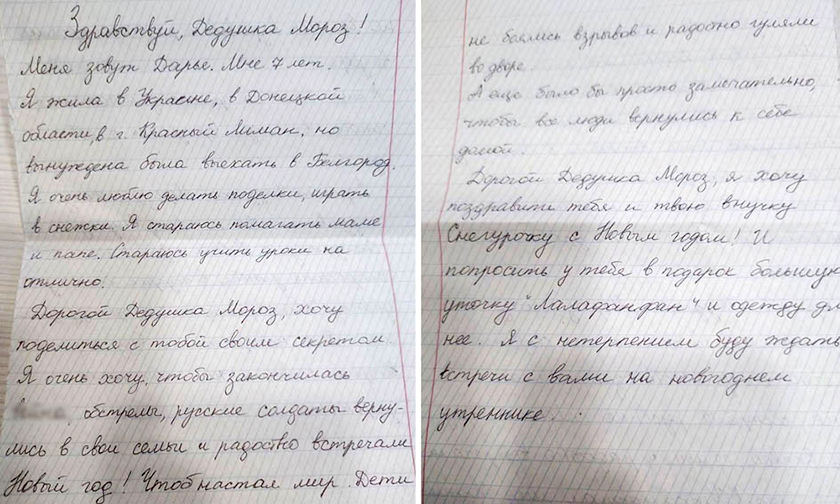 Здравствуй, Дедушка Мороз!
Меня зовут Дарье. Мне 7 лет.
Я жила в Украине, в Донецкой
области, в г. Красный Лиман, но
вынуждена была выехать в Белгород.
Я очень люблю делать поделки, играть
в снежки. Я стараюсь помагать маме
и папе. Стараюсь учить уроки на
отлично.
Дорогой Дедушка Мороз, хочу
поделиться с тобой своим секретом.
Я очень хочу, чтобы закончилась
, обстрелы, русские солдаты верну-
лись в свои семьи и радостно встречали
Новый год! Чтоб настал мир. Дети
не боялись взрывов и радостно гуляли
во дворе.
А еще было бы просто замечательно,
чтобы все люди вернулись к себе
домой.
Дорогой Дедушка Мороз, я хочу
поздравить тебя и твою внучку
Снегурочку с Новым годом! И
попросить у тебя в подарок большую
уточку "Лалафанфан" и одежду для
нее. Я с нетерпением буду ждать
встречи с вами на новогоднем
утреннике.